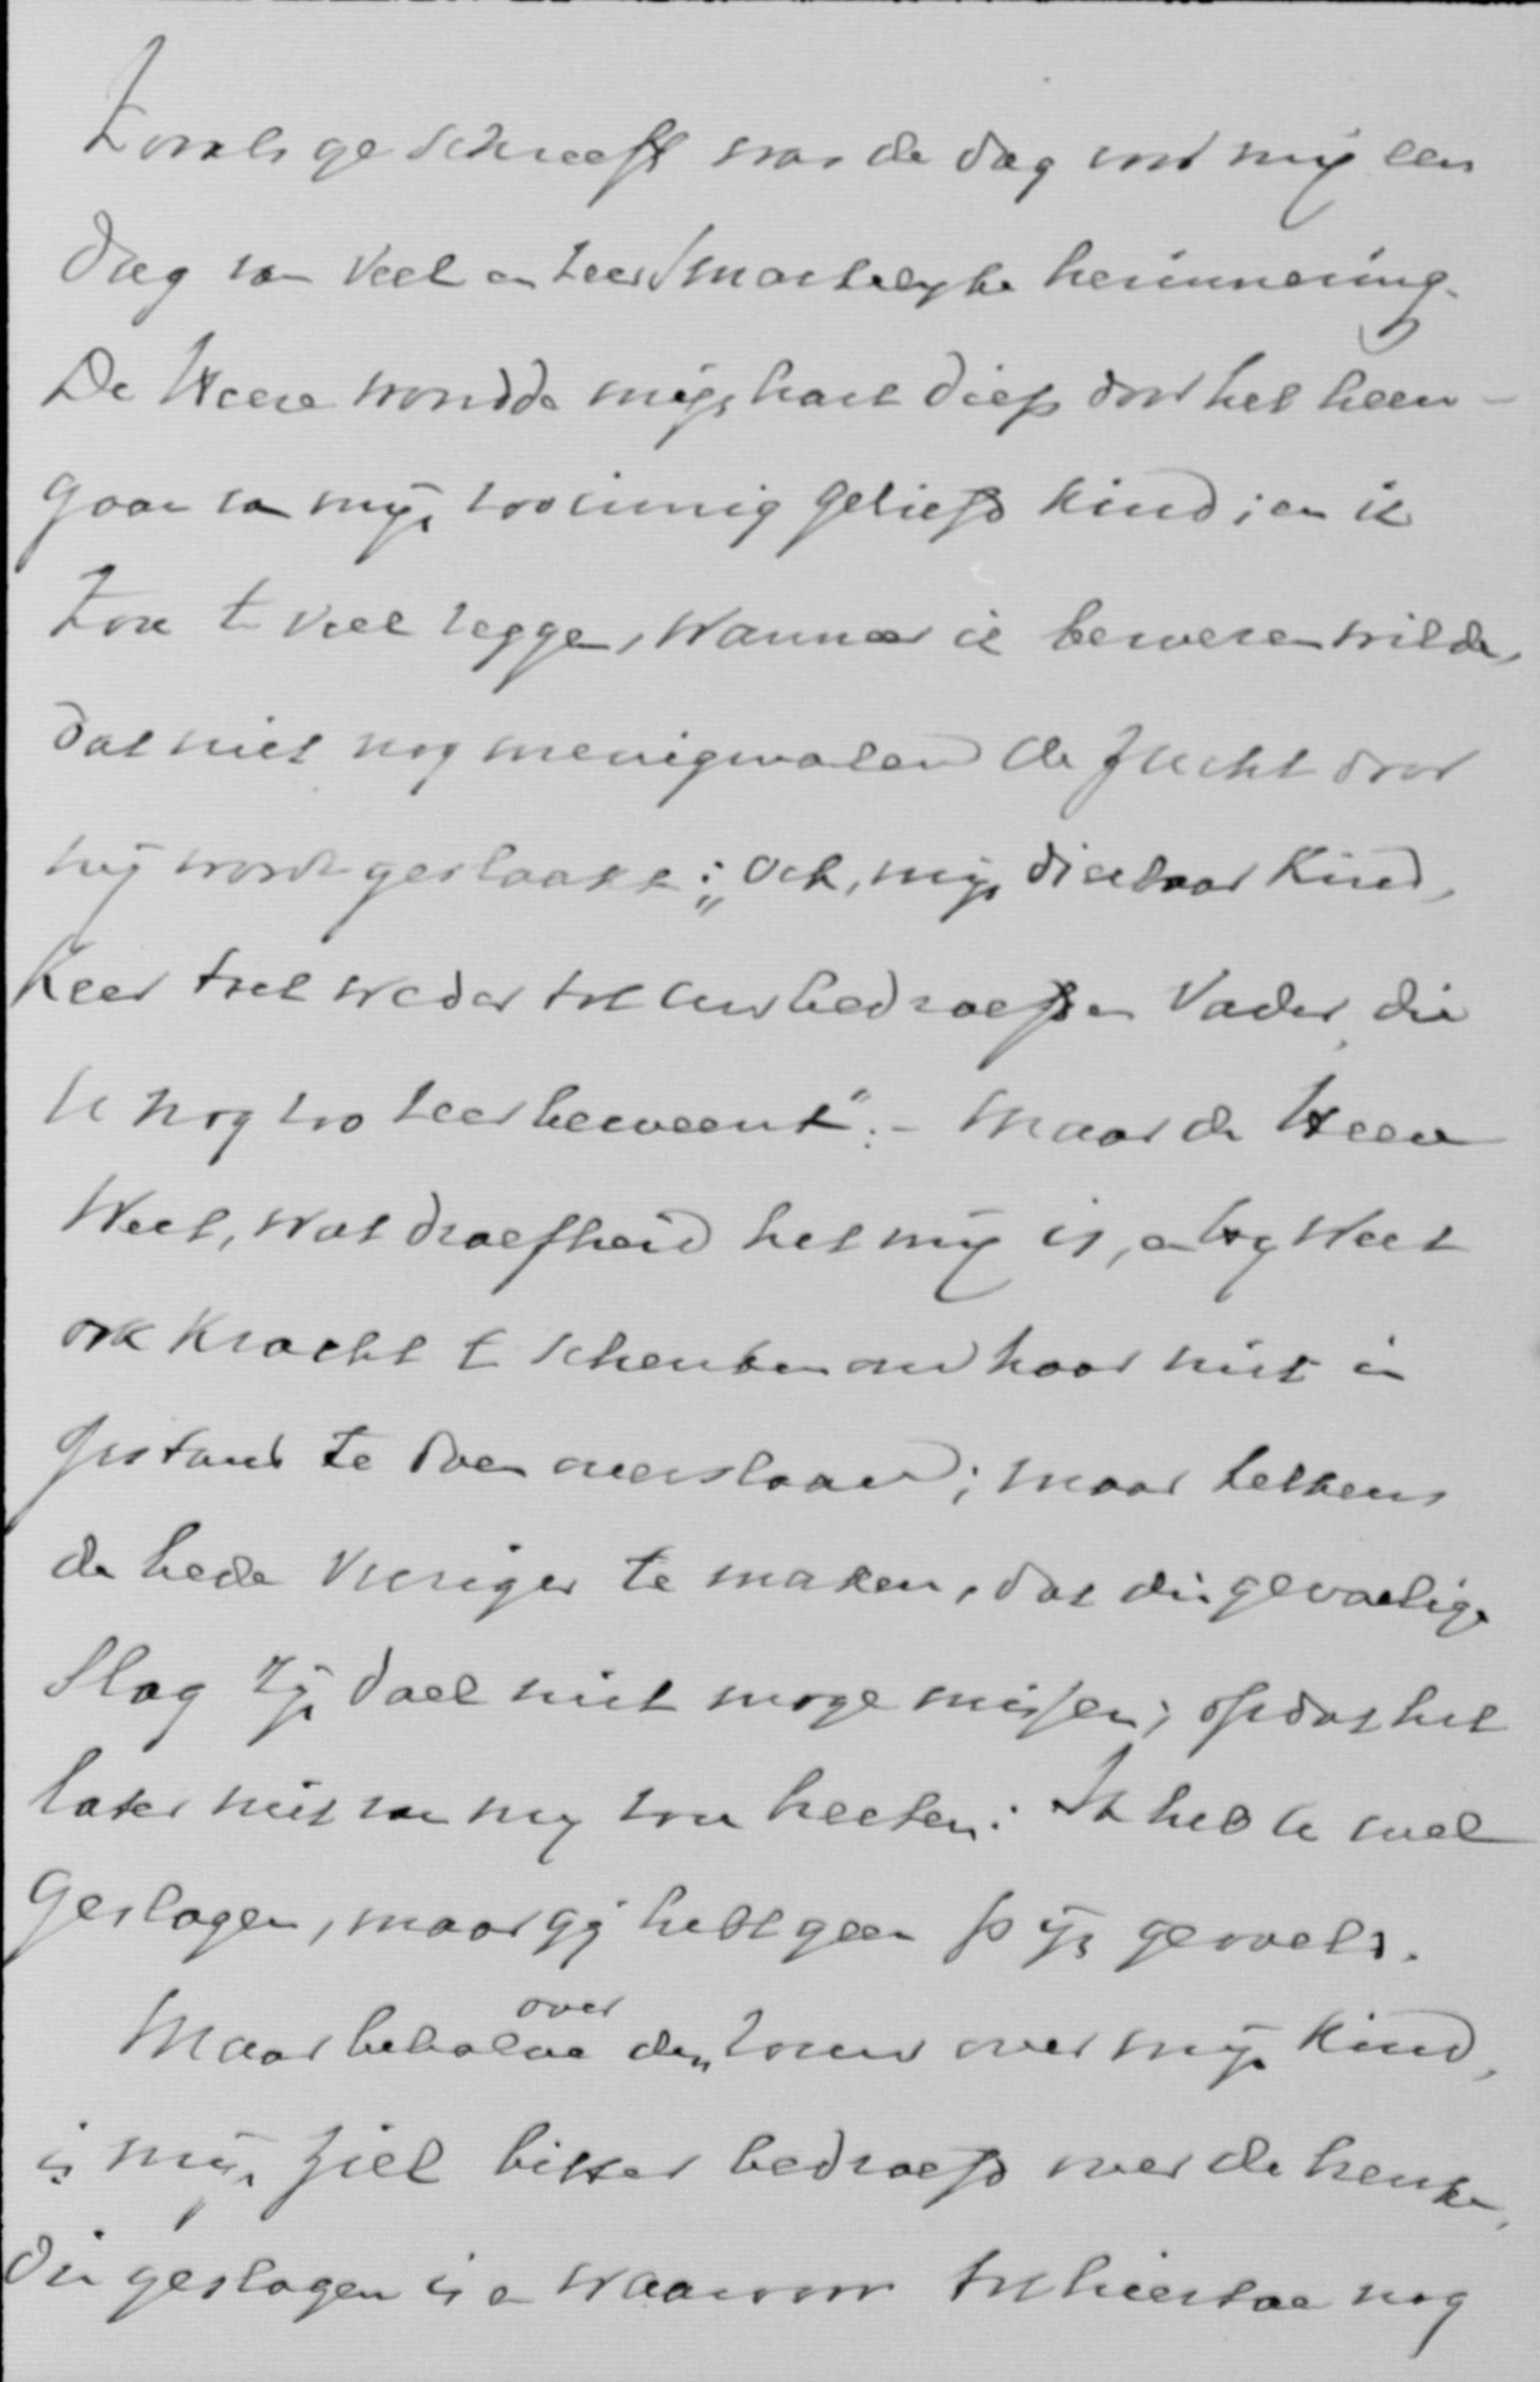 Zooals ge schreeft was de dag voor mij een
dag van veel en zeer smartelyke herinnering.
De Heere wondde mijn hart diep door het heen-
gaan van mijn zoo innig geliefd kind; en ik
zou te veel zeggen, wanneer ik beweren wilde,
dat niet nog menigmalen de zucht door
mij wordt geslaakt: "Och, mijn dierbaar kind,
keer toch weder tot uw bedroefden Vader, die
U nog zoo zeer beweent". - Maar de Heere
weet, wat droefheid het mij is, en Hy weet
ook kracht te schenken om haar niet in
opstand te doen overslaan; maar telkens
de bede vuriger te maken, dat die geweldige
slag zijn doel niet moge missen; opdat het
later niet van my zou heeten: Ik heb U wel
geslagen, maar gij hebt geen pijn gevoeld.
Maar behalve over den rouw over mijn kind,
is mijn ziel bitter bedroefd over de breuke,
die geslagen is en waarvoor tot hiertoe nog